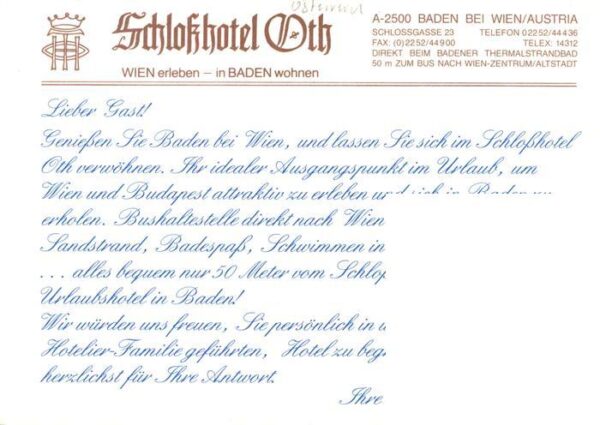 Österreich
Schloßhotel Oth
WIEN erleben – in BADEN wohnen
A-2500 BADEN BEI WIEN/AUSTRIA
SCHLOSSGASSE 23 TELEFON 02252/44436
FAX: (0)2252/44900 TELEX: 14312
DIREKT BEIM BADENER THERMALSTRANDBAD
50 m ZUM BUS NACH WIEN-ZENTRUM/ALTSTADT
Lieber Gast!
Genießen Sie Baden bei Wien, und lassen Sie sich im Schloßhotel
Oth verwöhnen. Ihr idealer Ausgangspunkt im Urlaub, um
Wien und Budapest attraktiv zu erleben und sich in Baden zu
erholen. Bushaltestelle direkt nach Wien
Sandstrand, Badespaß, Schwimmen in
... alles bequem nur 50 Meter vom
Urlaubshotel in Baden!
Wir würden uns freuen, Sie persönlich in
Hotelier-Familie geführten, Hotel zu
herzlichst für Ihre Antwort.
Ihre